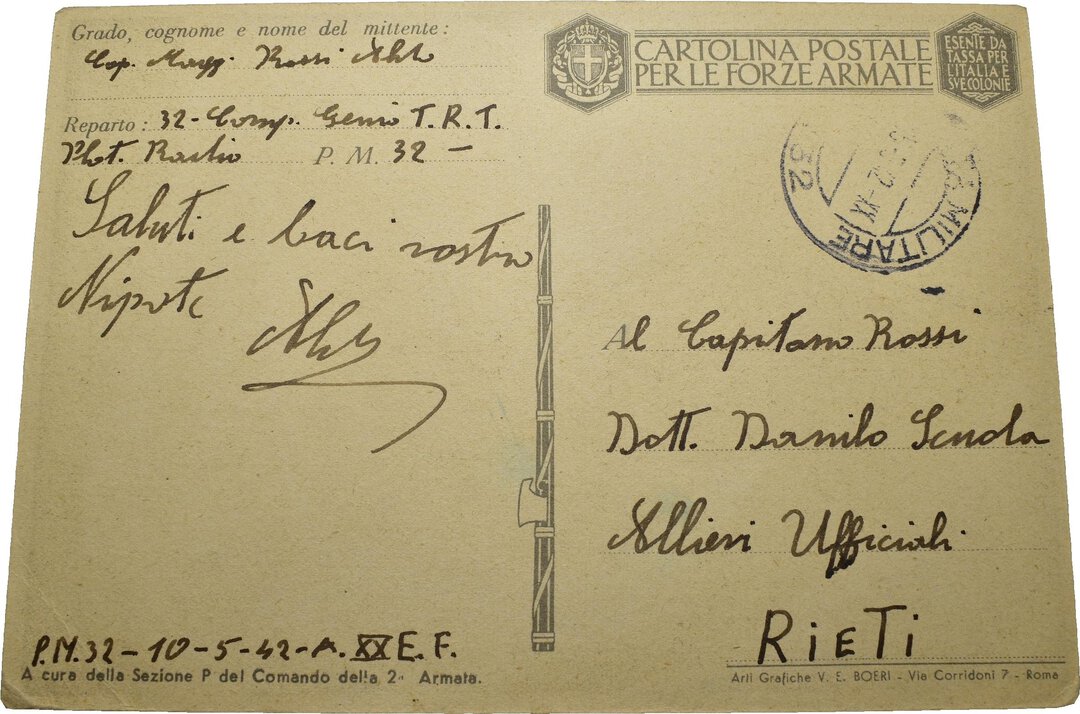 Grado, cognome e nome del mittente:
Cap. Magg. Rossi
Reparto: 32-Comp. Genio T.R.T.
Plot. Radio P. M. 32 -
Saluti e baci vostro
Nipote
CARTOLINA POSTALE
PER LE FORZE ARMATE
ESENTE DA
TASSA PER
L'ITALIA E
SVE COLONIE
MILITARE
32
Al Capitano Rossi
Dott. Danilo Scuola
Allievi Ufficiali
RiETi
P.M.32-10-5-42-A. XX E. F.
A cura della Sezione P del Comando della 2ª Armata.
Arti Grafiche V. E. BOERI - Via Corridoni 7 - Roma